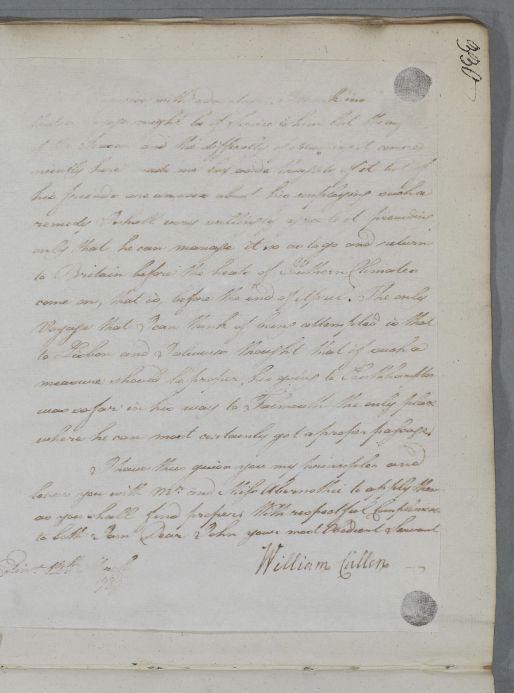 330
with advantage. I
that a voyage might be of service to him but the
of the Season and the difficulty of obtaining it conve
niently here made me lay aside thoughts of it but if
his friends are anxious about his employing such a
remedy I shall very willingly agree to it provided
only that he can manage it so as to go and return
to Britain before the heats of Southern Climates
come on, that is, before the end of April. The only
Voyage that I can think of being attempted is that
to Lisbon and I always thought that if such a
measure should be proper his going to Southampton
was so far in his way to Falmouth the only place
where he can most certainly get a proper passage.
I have thus given you my principles and
leave you with Mr. and Miss Abernethie to apply them
as you shall find proper. With respectful Compliments
to both I am Dear John your most Obedient Servant
William Cullen
Edinr. 12th